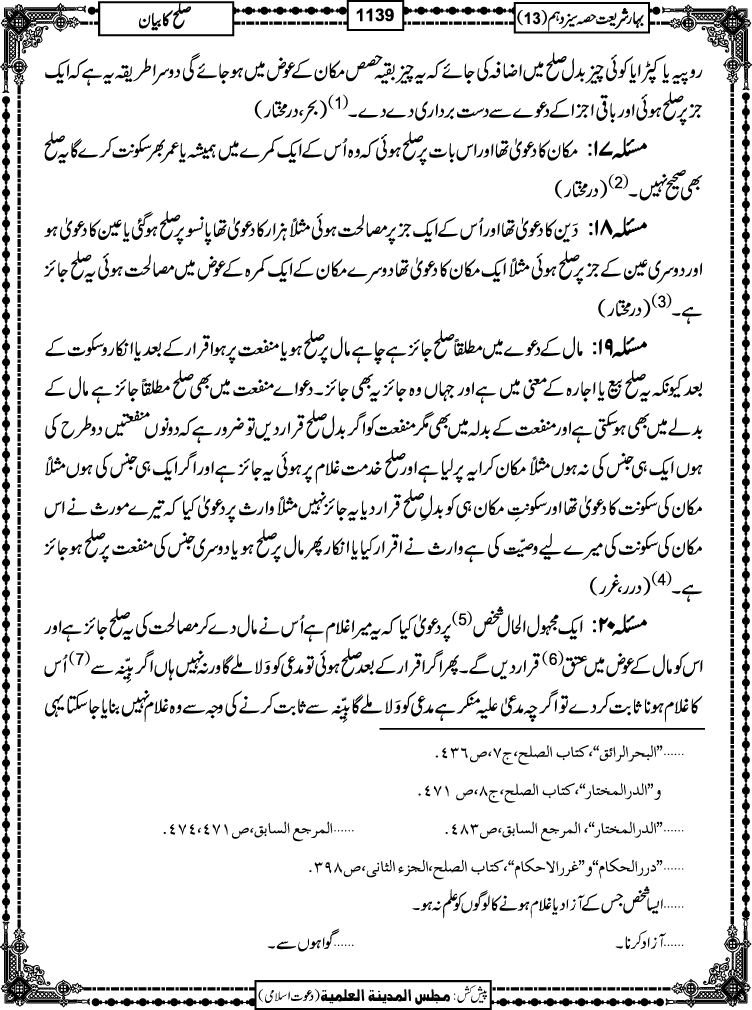 بہار شریعت حصہ سیزدہم (13)
1139
صلح کا بیان
روپیہ یا کپڑا یا کوئی چیز بدل صلح میں اضافہ کی جائے کہ یہ چیز بقیہ حصص مکان کے عوض میں ہو جائے گی دوسرا طریقہ یہ ہے کہ ایک
جز پر صلح ہوئی اور باقی اجزا کے دعوے سے دست برداری دے دے۔(1) (بحر، درمختار)
مسئلہ ۱۷: مکان کا دعویٰ تھا اور اس بات پر صلح ہوئی کہ وہ اُس کے ایک کمرے میں ہمیشہ یا عمر بھر سکونت کرے گا یہ صلح
بھی صحیح نہیں۔(2) (درمختار)
مسئلہ ۱۸: دَین کا دعویٰ تھا اور اُس کے ایک جز پر مصالحت ہوئی مثلاً ہزار کا دعویٰ تھا پانسو پر صلح ہوگئی یا عین کا دعویٰ ہو
اور دوسری عین کے جز پر صلح ہوئی مثلاً ایک مکان کا دعویٰ تھا دوسرے مکان کے ایک کمرہ کے عوض میں مصالحت ہوئی یہ صلح جائز
ہے۔(3) (درمختار)
مسئلہ ۱۹: مال کے دعوے میں مطلقاً صلح جائز ہے چاہے مال پر صلح ہو یا منفعت پر ہو اقرار کے بعد یا انکار و سکوت کے
بعد کیونکہ یہ صلح بیع یا اجارہ کے معنی میں ہے اور جہاں وہ جائز یہ بھی جائز۔ دعواے منفعت میں بھی صلح مطلقاً جائز ہے مال کے
بدلے میں بھی ہوسکتی ہے اور منفعت کے بدلہ میں بھی مگر منفعت کو اگر بدل صلح قرار دیں تو ضرور ہے کہ دونوں منفعتیں دو طرح کی
ہوں ایک ہی جنس کی نہ ہوں مثلاً مکان کرایہ پر لیا ہے اور صلح خدمت غلام پر ہوئی یہ جائز ہے اور اگر ایک ہی جنس کی ہوں مثلاً
مکان کی سکونت کا دعویٰ تھا اور سکونتِ مکان ہی کو بدلِ صلح قرار دیا یہ جائز نہیں مثلاً وارث پر دعویٰ کیا کہ تیرے مورث نے اس
مکان کی سکونت کی میرے لیے وصیّت کی ہے وارث نے اقرار کیا یا انکار پھر مال پر صلح ہو یا دوسری جنس کی منفعت پر صلح ہو جائز
ہے۔(4) (درر، غرر)
مسئلہ ۲۰: ایک مجہول الحال شخص(5) پر دعویٰ کیا کہ یہ میرا غلام ہے اُس نے مال دے کر مصالحت کی یہ صلح جائز ہے اور
اس کو مال کے عوض میں عتق(6) قرار دیں گے۔ پھر اگر اقرار کے بعد صلح ہوئی تو مدعی کو وَلا ملے گا ورنہ نہیں ہاں اگر بیّنہ سے(7) اُس
کا غلام ہونا ثابت کردے تو اگرچہ مدعیٰ علیہ منکر ہے مدعی کو وَلا ملے گا بیّنہ سے ثابت کرنے کی وجہ سے وہ غلام نہیں بنایا جاسکتا یہی
......”البحرالرائق“، کتاب الصلح، ج۷، ص۴۳۶.
و”الدرالمختار“، کتاب الصلح، ج۸، ص ۴۷۱.
......”الدرالمختار“، المرجع السابق، ص۴۸۳. ......المرجع السابق، ص۴۷۱، ۴۷۴.
......”دررالحکام“ و ”غررالاحکام“، کتاب الصلح، الجزء الثانی، ص۳۹۸.
......ایسا شخص جس کے آزاد یا غلام ہونے کا لوگوں کو علم نہ ہو۔
......آزاد کرنا۔ ......گواہوں سے۔
پیش کش: مجلس المدینة العلمیة (دعوت اسلامی)